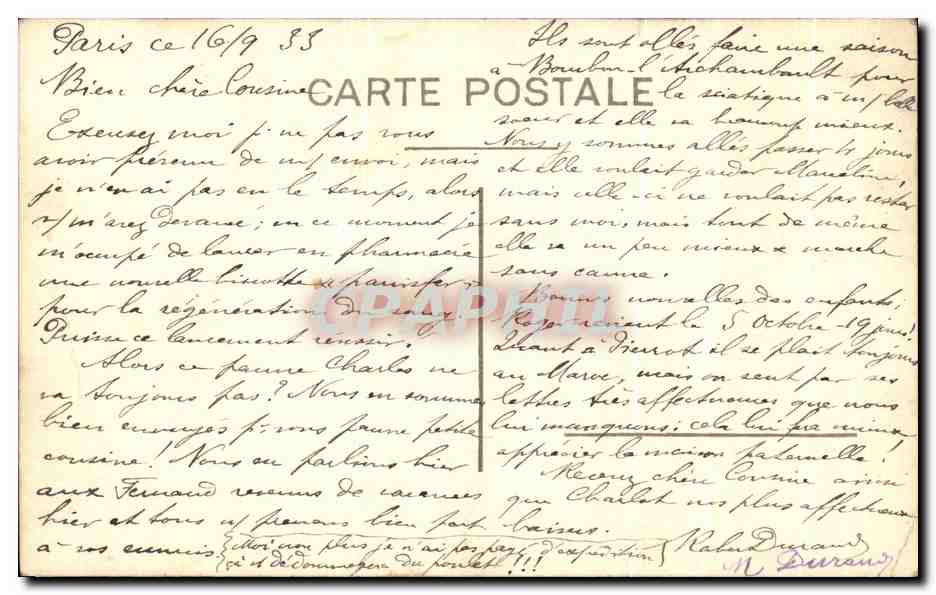 Paris ce 16/9 33
Bien chère Cousine
CARTE POSTALE
Excusez moi p. ne pas vous
avoir prévenu de m/ envoi, mais
je n'en ai pas eu le temps, alors
v/ m'avez devancé ; en ce moment je
m'occupe de lancer en pharmacie
une nouvelle biscotte
pour la régénération du sang.
Puisse ce lancement réussir.
Alors ce pauvre Charles ne
va toujours pas? Nous en sommes
bien ennuyés p. vous pauvre petite
cousine! Nous en parlions hier
aux Fernand revenus de vacances
hier et tous n/ prenons bien part
à vos ennuis
Moi non plus je n'ai pas payé d'expédition
çà v/ dédommagera du poulet!!!
Ils sont allés faire une saison
à Bourbon-l'Archambault pour
la sciatique à m/ belle
soeur et elle va beaucoup mieux.
Nous y sommes allés passer jours
et elle voulait garder Marceline,
mais celle-ci ne voulait pas rester
sans moi, mais tout de même
elle va un peu mieux & marche
sans canne.
Bonnes nouvelles des enfants;
Roger revient le 5 Octobre - 19 jours!
Quant à Pierrot il se plait toujours
au Maroc, mais on sent par ses
lettres très affectueuses que nous
lui manquons; cela lui fra mieux
apprécier la maison paternelle!
Recevez chère Cousine ainsi
que Charlot nos plus affectueux
baisers.
Durand
M Durand
CPAPHIL